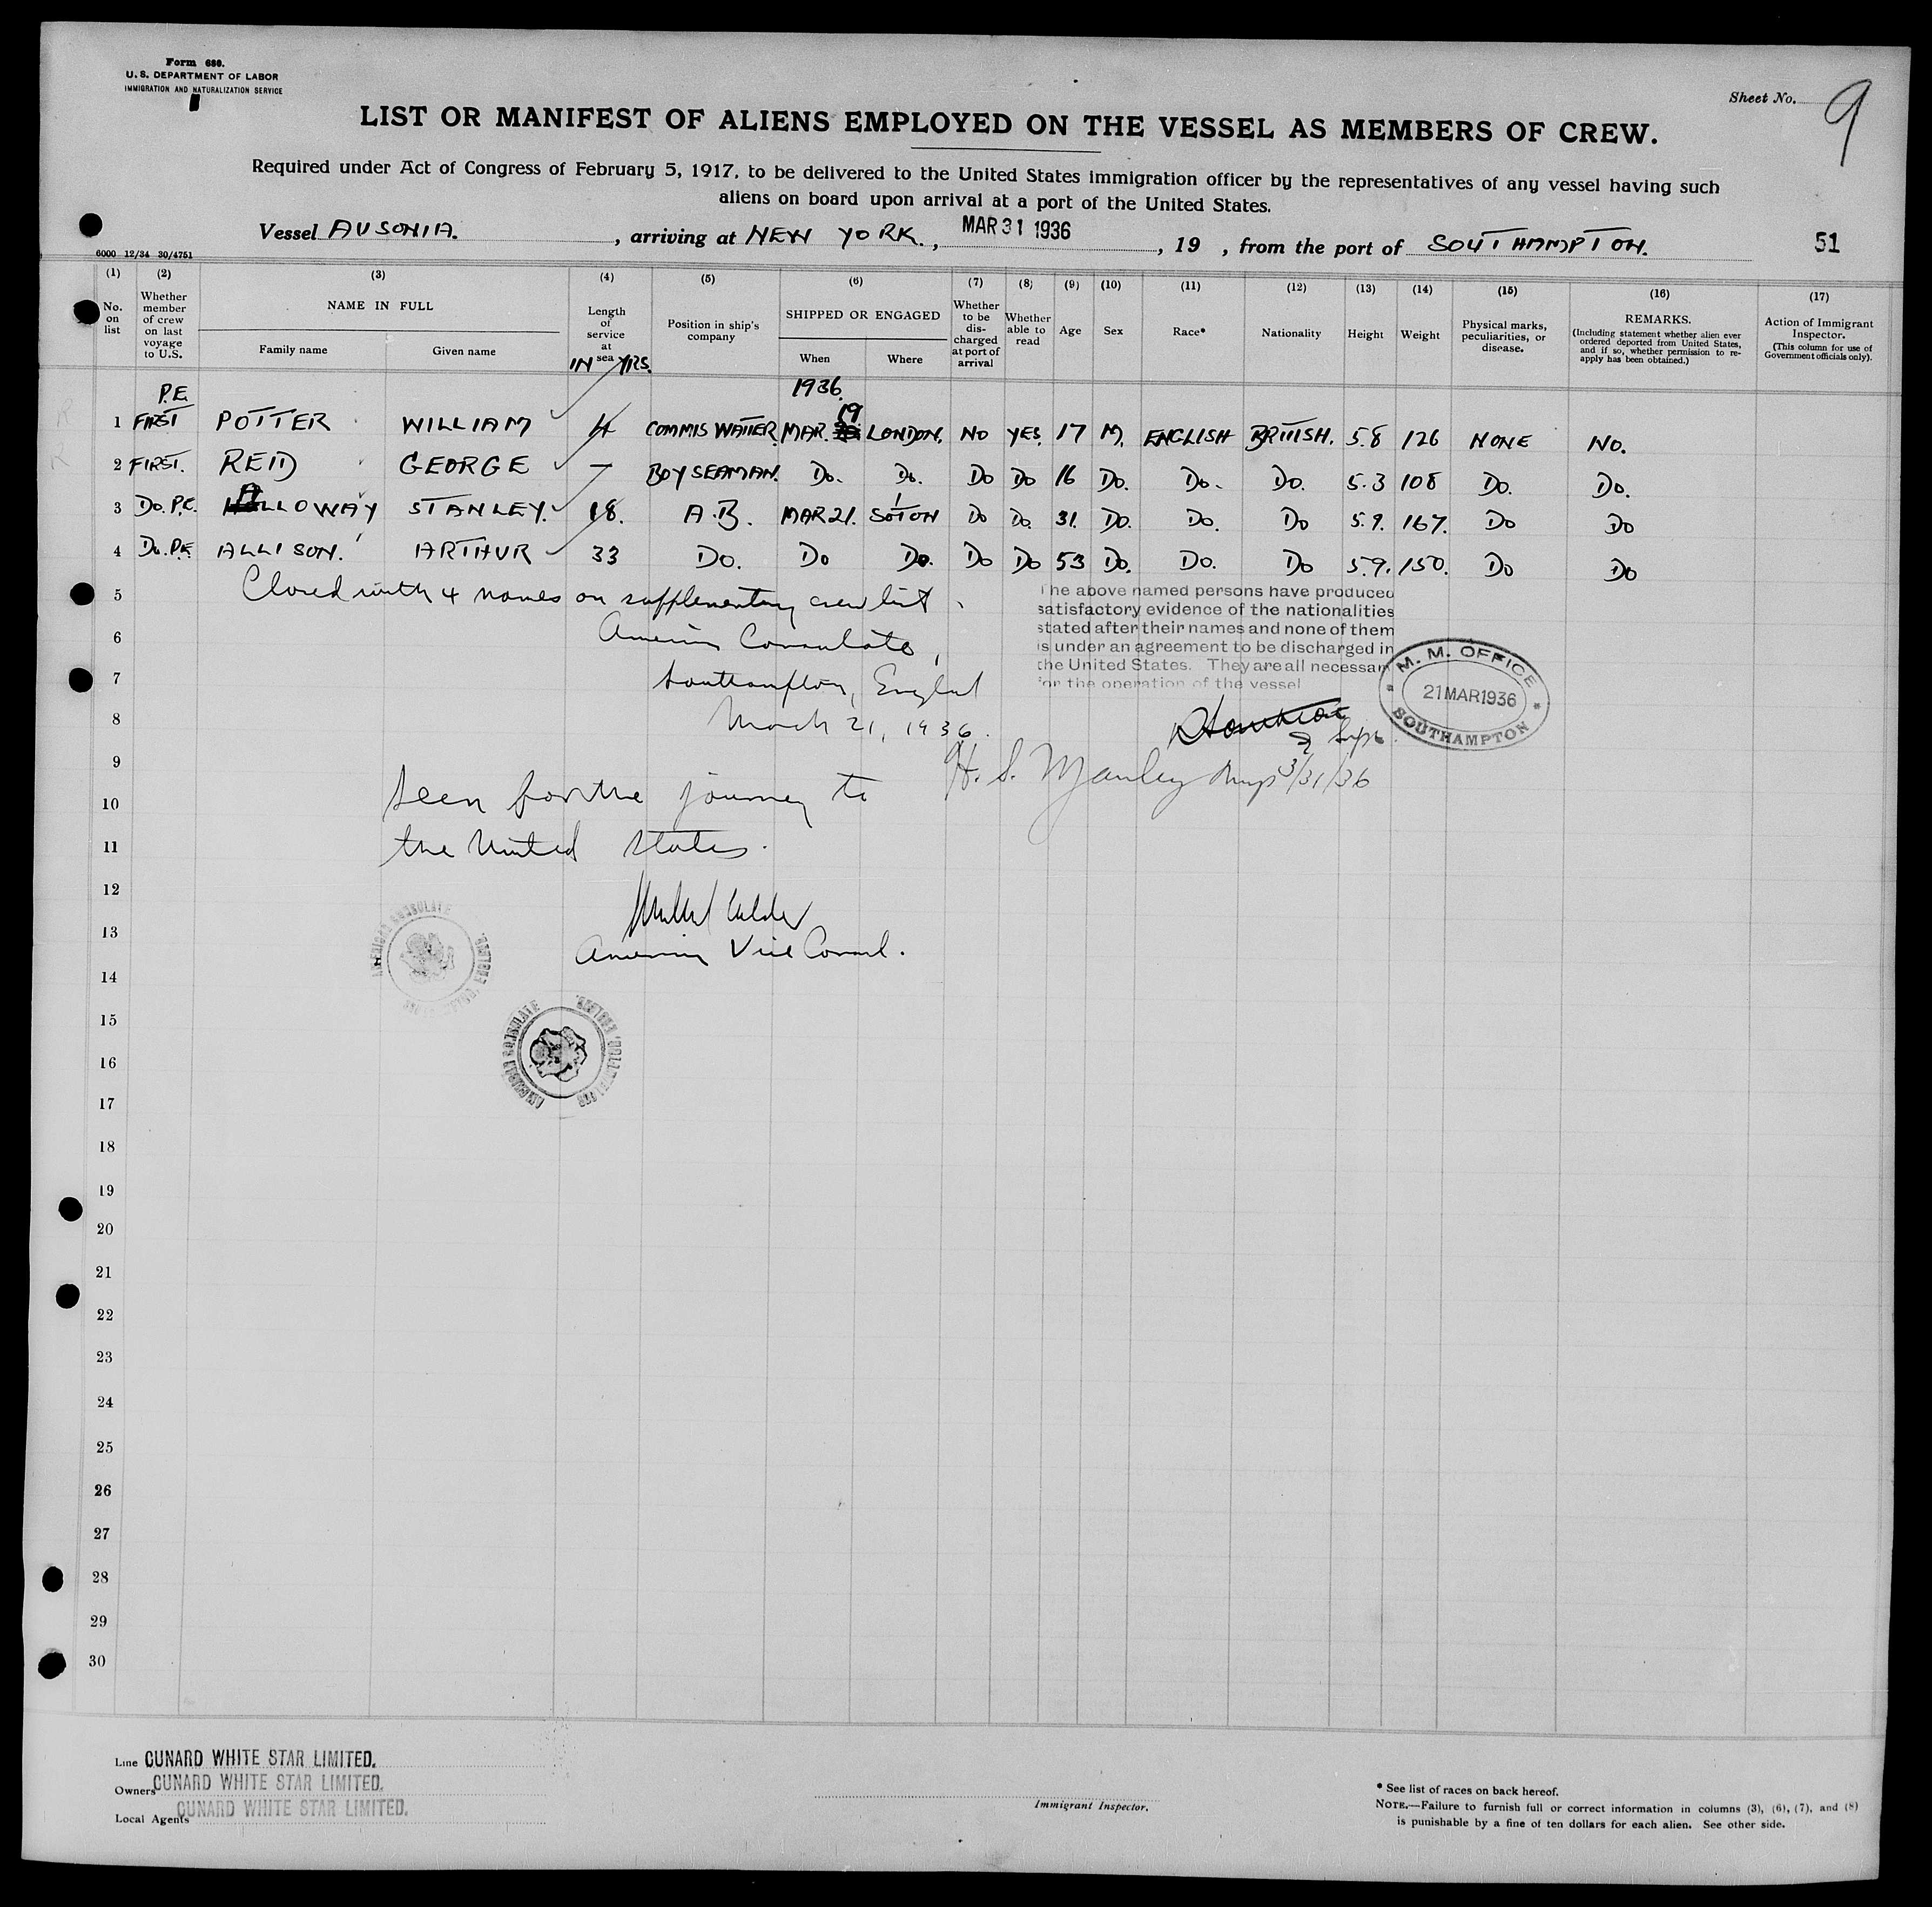 Form 680.
U. S. DEPARTMENT OF LABOR
IMMIGRATION AND NATURALIZATION SERVICE
Sheet No. 9
LIST OR MANIFEST OF ALIENS EMPLOYED ON THE VESSEL AS MEMBERS OF CREW.
Required under Act of Congress of February 5, 1917, to be delivered to the United States immigration officer by the representatives of any vessel having such
aliens on board upon arrival at a port of the United States.
Vessel AUSONIA. , arriving at NEW YORK. , MAR 31 1936 , 19 , from the port of SOUTHAMPTON. 51
6000 12/34 30/4751
(1) (2) (3) (4) (5) (6) (7) (8) (9) (10) (11) (12) (13) (14) (15) (16) (17)
No. on list
Whether member of crew on last voyage to U.S.
NAME IN FULL
Family name Given name
Length of service at sea
IN YRS.
Position in ship's company
SHIPPED OR ENGAGED
When Where
Whether to be discharged at port of arrival
Whether able to read
Age
Sex
Race*
Nationality
Height
Weight
Physical marks, peculiarities, or disease.
REMARKS.
(Including statement whether alien ever ordered deported from United States, and if so, whether permission to reapply has been obtained.)
Action of Immigrant Inspector.
(This column for use of Government officials only).
P.E. 1936.
1 FIRST POTTER WILLIAM 4 COMMIS WAITER MAR. 19 LONDON. NO YES. 17 M. ENGLISH BRITISH. 5.8 126 NONE NO.
2 FIRST. REID GEORGE — BOY SEAMAN. Do. Do. Do Do 16 Do. Do. Do. 5.3 108 Do. Do.
3 Do. P.E. HOLLOWAY STANLEY. 18. A.B. MAR 21. SOTON Do Do. 31. Do. Do. Do 5.9. 167. Do Do
4 Do. P.E. ALLISON. ARTHUR 33 Do. Do Do. Do Do 53 Do. Do. Do 5.9. 150. Do Do
5
Closed with 4 names on supplementary crew list.
The above named persons have produced
satisfactory evidence of the nationalities
stated after their names and none of them
is under an agreement to be discharged in
the United States. They are all necessary
for the operation of the vessel
6
American Consulate,
7
Southampton, England
8
March 21, 1936.
M. M. OFFICE
21 MAR 1936
SOUTHAMPTON
9
H. S. Manley Insp 3/31/36
10
Seen for the journey to
11
the United States.
12
13
American Vice Consul.
AMERICAN CONSULATE
14
15
AMERICAN CONSULATE
16
17
18
19
20
21
22
23
24
25
26
27
28
29
30
Line CUNARD WHITE STAR LIMITED.
Owners CUNARD WHITE STAR LIMITED.
Local Agents CUNARD WHITE STAR LIMITED.
Immigrant Inspector.
* See list of races on back hereof.
NOTE.—Failure to furnish full or correct information in columns (3), (6), (7), and (8)
is punishable by a fine of ten dollars for each alien. See other side.